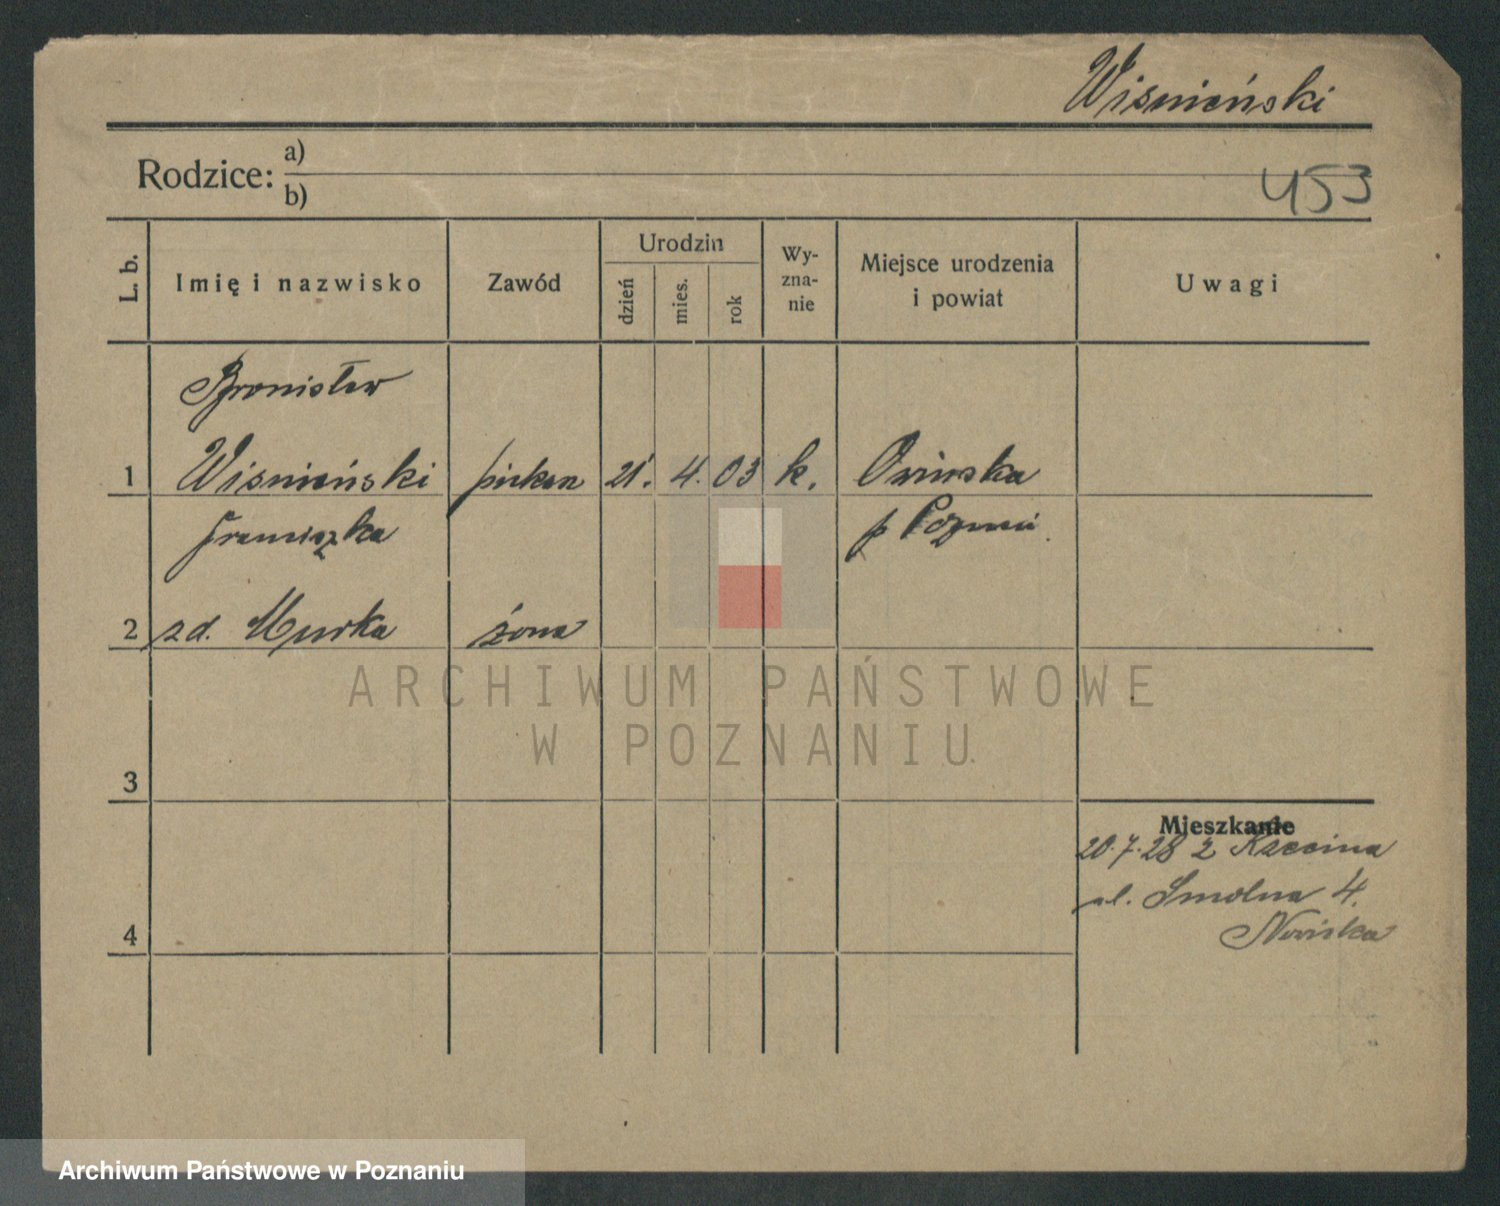 Wiśnieński
Rodzice: a)
b)
453
L. b.
Imię i nazwisko
Zawód
Urodzin
dzień
mies.
rok
Wy-
zna-
nie
Miejsce urodzenia
i powiat
Uwagi
Bronisław
1 Wiśnieński piekarz 21. 4. 03 k. Owińska
Franciszka p Poznań
2 zd. Murka żona
ARCHIWUM PAŃSTWOWE
W POZNANIU
3
Mieszkanie
20.7.28 z
ul. Smolna 4.
4
Archiwum Państwowe w Poznaniu